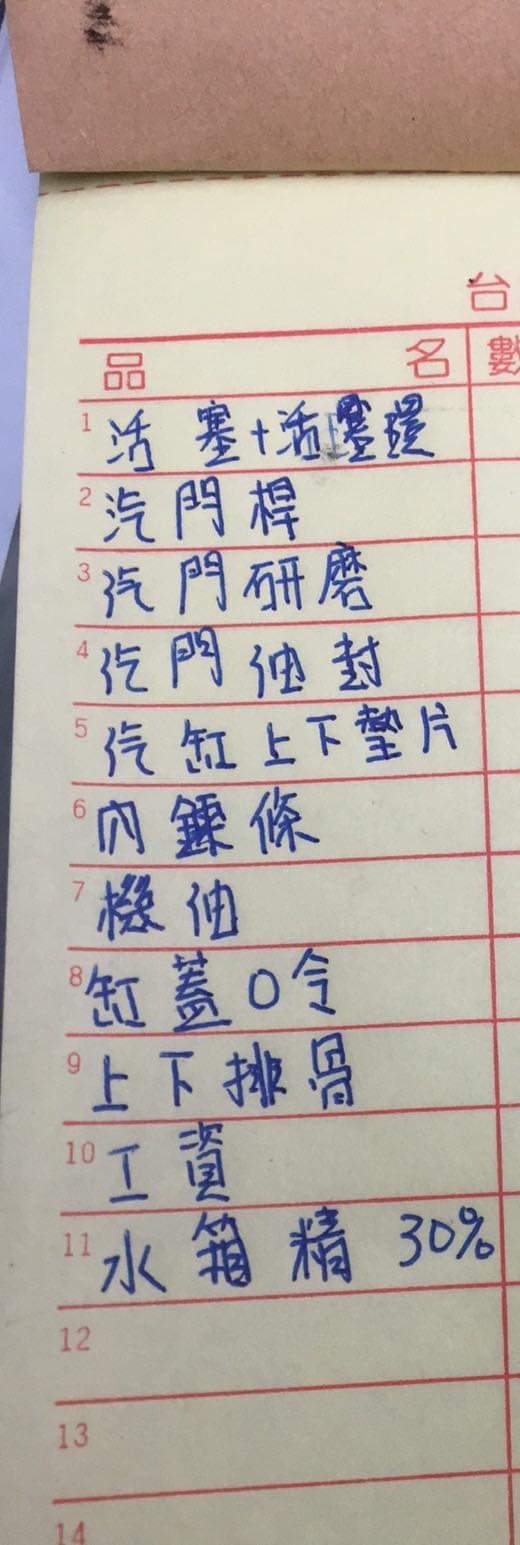 台
品名 數
1 活塞+活塞環
2 汽門桿
3 汽門研磨
4 汽門油封
5 汽缸上下墊片
6 內鍊條
7 機油
8 缸蓋O令
9 上下排骨
10 工資
11 水箱精 30%
12
13
14